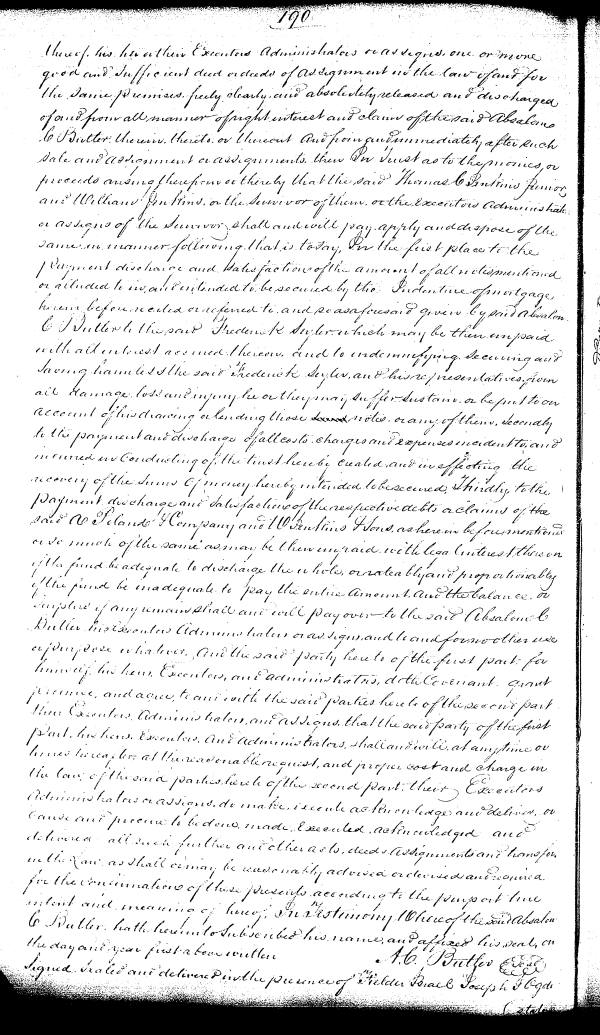 190
thereof, his her or their Executors Administrators or assigns, one or more
good and sufficient deed or deeds of assignment in the law of and for
the same premises, freely, clearly, and absolutely released and discharged
of and from all manner of right interest and claim of the said Absalom
C Butler therein, thereto, or thereout And from and immediately after such
sale and assignment or assignments then In trust as to the monies, or
proceeds arising therefrom or thereby that the said Thomas C Jenkins Junior,
and William Jenkins, or the survivor of them, or the Executors Administrators
or assigns of the survivor, shall and will pay, apply and dispose of the
same, in manner following, that is to say, In the first place to the
payment discharge and satisfaction of the amount of all notes mentioned
or alluded to in, and intended to be secured by the Indenture of mortgage
herein before recited or referred to, and so as aforesaid given by said Absalom
C Butler to the said Frederick Seyler, which may be then unpaid
with all interest accrued thereon, and to indemnifying, securing and
saving harmless the said Frederick Seyler, and his representatives, from
all damage, loss and injury he or they may suffer sustain or be put to on
account of his drawing or lending those notes, or any of them, secondly
to the payment and discharge of all costs, charges and expenses incident to, and
incurred in conducting of, the trust hereby created, and in effecting the
recovery of the sums of money hereby intended to be secured, Thirdly, to the
payment discharge and satisfaction of the respective debts or claims of the
said & Company and W Jenkins & Sons, as herein before mentioned
or so much of the same as may be then unpaid, with legal interest thereon
if the fund be adequate to discharge the whole, or rateably and proportionably
if the fund be inadequate to pay the entire amount, And the balance, or
surplus if any remain shall and will pay over to the said Absalom C
Butler his Executors Administrators or assigns, and to and for no other use
or purpose whatever, And the said party hereto of the first part, for
himself, his heirs, Executors, and administrators, doth Covenant, grant
promise, and agree, to and with the said parties hereto of the second part
their Executors, Administrators, and assigns, that the said party of the first
part, his heirs, Executors, And Administrators, shall and will, at any time or
times hereafter at the reasonable request, and proper cost and charge in
the law, of the said parties hereto of the second part, their Executors
Administrators or assigns, do make, execute acknowledge and deliver, or
cause and procure to be done, made, Executed, acknowledged and
delivered all such further and other acts, deeds assignments and transfers
in the Law, as shall or may be reasonably advised or devised and required
for the confirmation of these presents, according to the purport true
intent and meaning of hereof, In Testimony Whereof the said Absalom
C Butler, hath hereunto Subscribed his name, and affixed his seal, on
the day and year first above written
A. C. Butler Seal
Signed Sealed and delivered in the presence of Fielder Israel Joseph